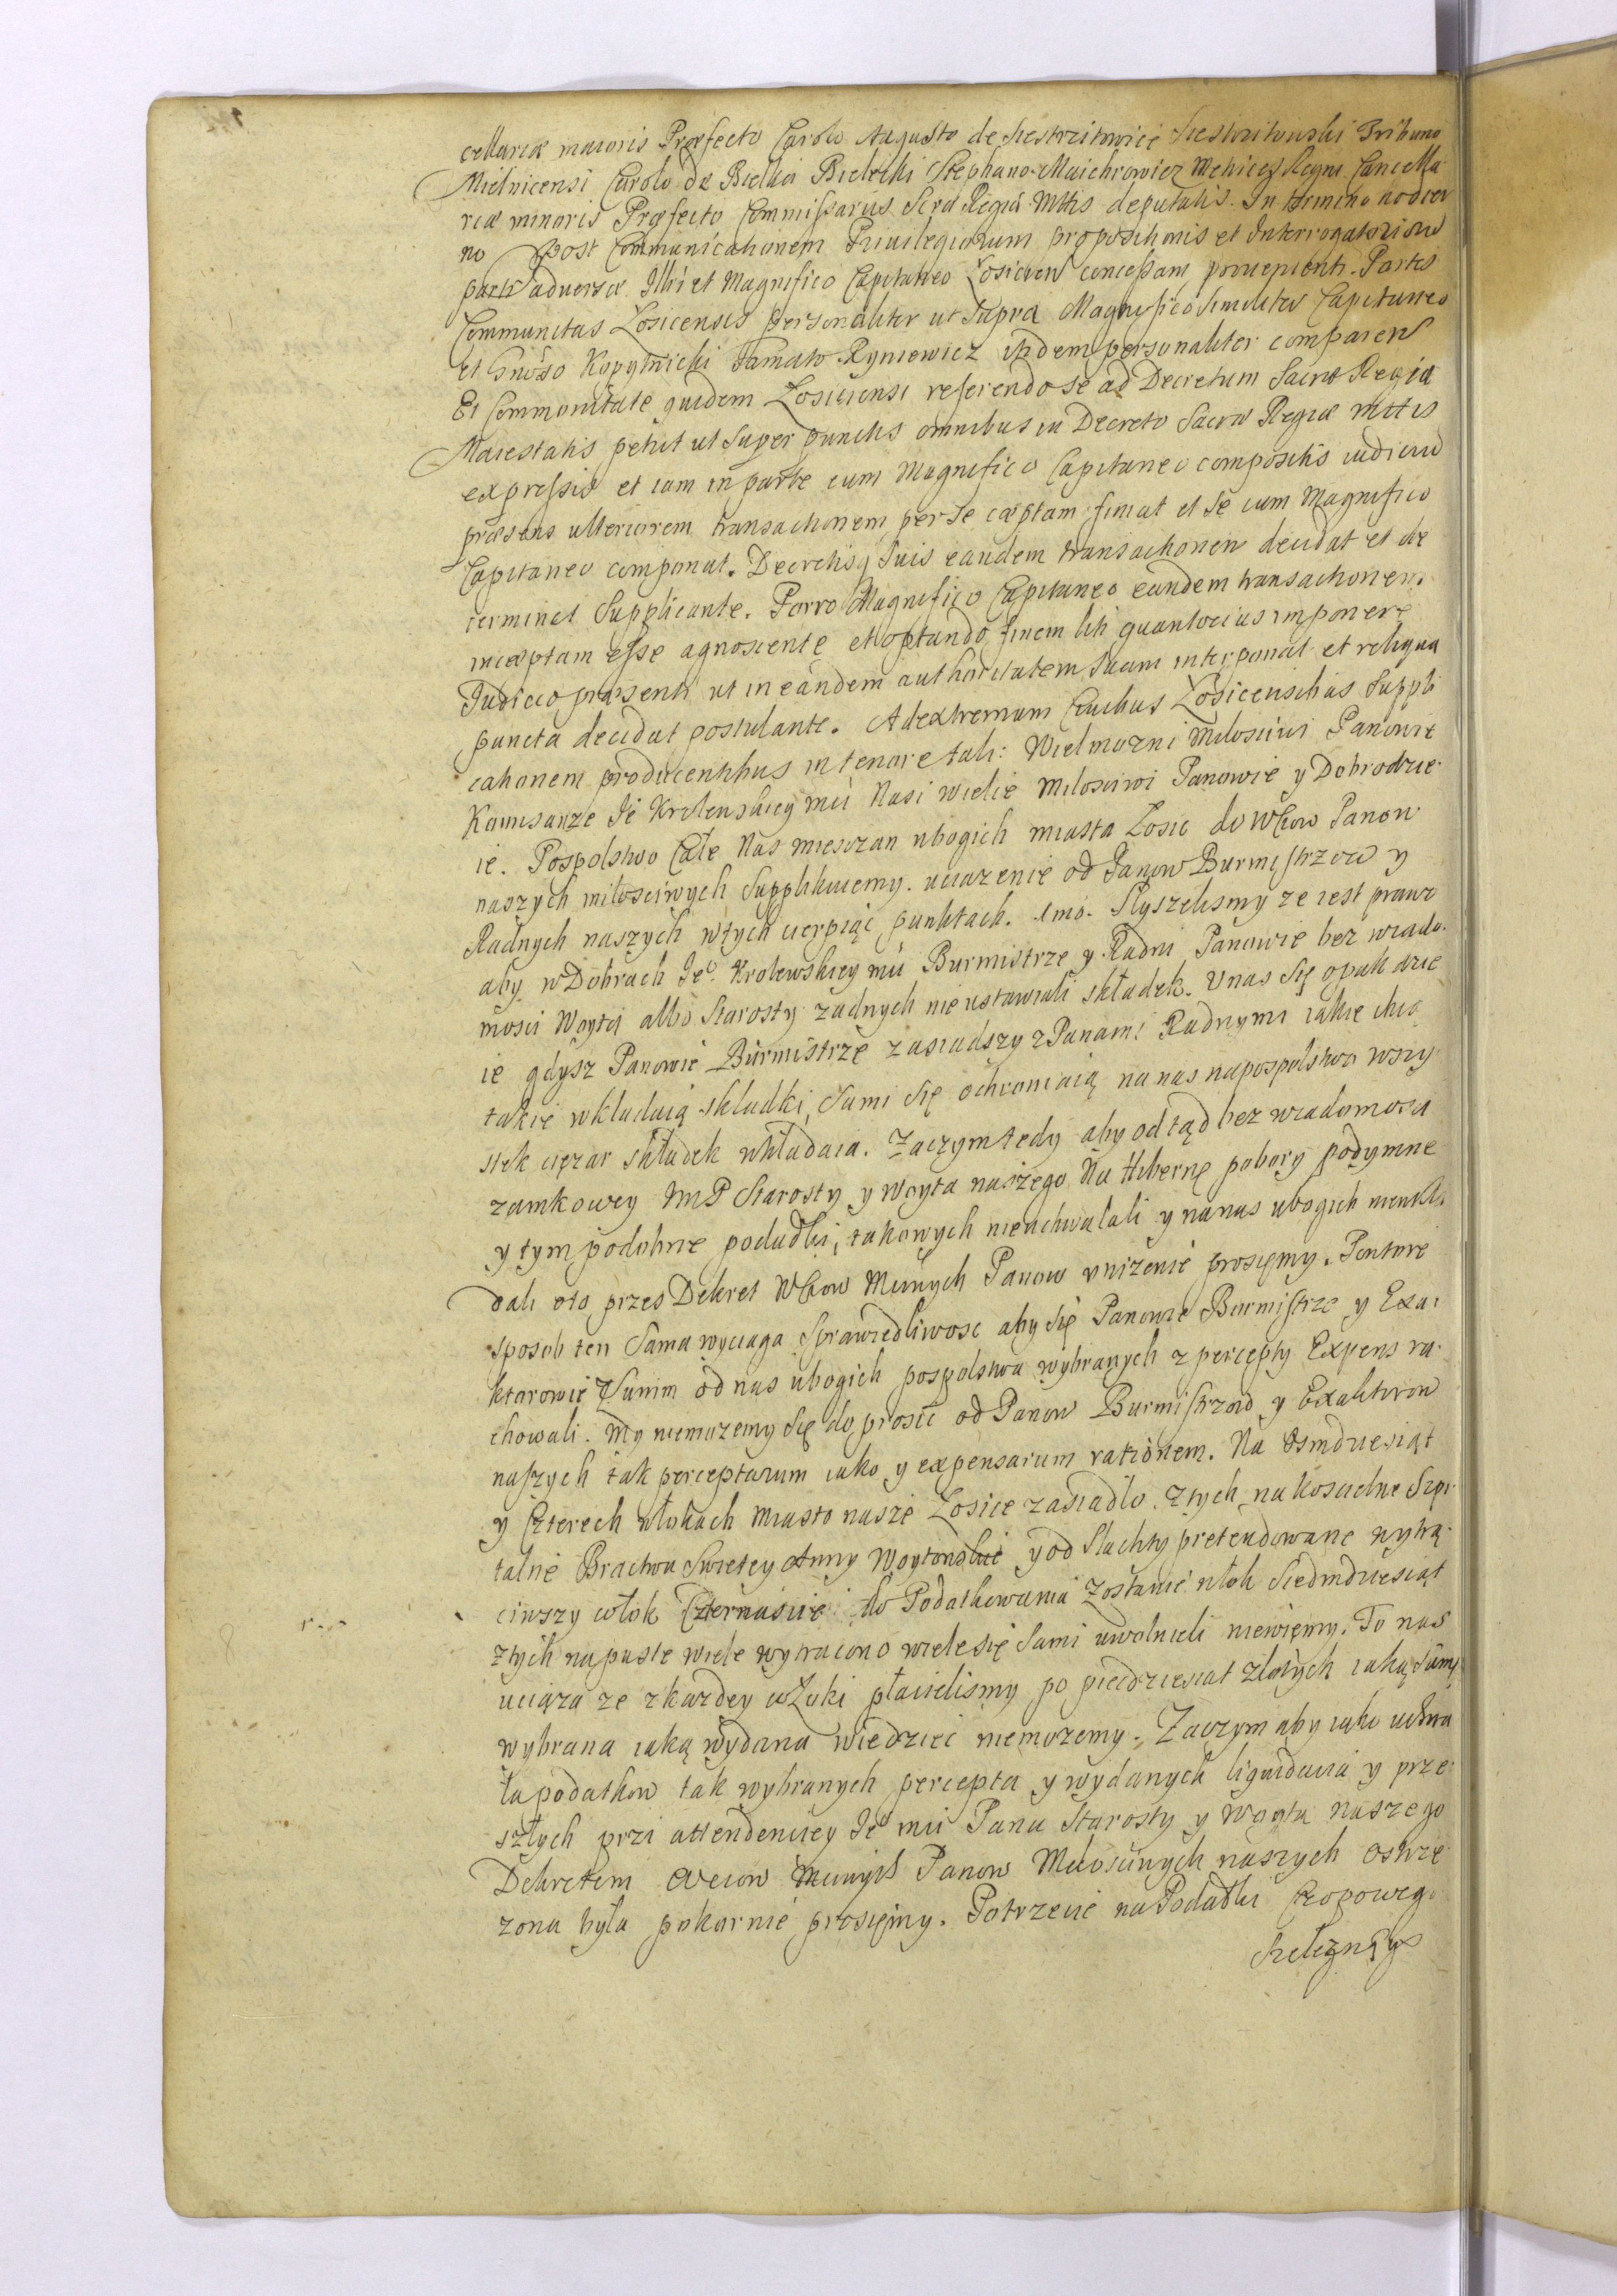 cellariæ maioris Præfecto Carolo Augusto de Siestrzitowice Siestrzitowski Tribuno
Mielnicensi Carolo de Bielki Bielicki Stephano Maichrowicz Metrices Regni Cancella
riæ minoris Præfecto Commissarys Scræ Regiæ Mttis deputatis. In termino hodier
no post Communicationem Priuilegiorum propositionis et Interrogatoriorū
partis aduersæ Illri et Magnifico Capitaneo Łosicen concessam prouenienti. Partes
Communitas Łosicensis personaliter ut supra Magnifico similiter Capitaneo
et Gnōso Kopytnicki Famato Ryniewicz itidem personaliter comparen
Et Communitate quidem Łosiciensi referendo se ad Decretum Sacræ Regiæ
Maiestatis petiit ut super punctis omnibus in Decreto Sacræ Regiæ Mttis
expressis et iam in parte cum Magnifico Capitaneo compositis iudicium
præsens ulteriorem transactionem per se cæptam finiat et se cum Magnifico
Capitaneo componat. Decretisq suis eandem transactionem decidat et de
terminet Supplicante. Porro Magnifico Capitaneo eandem transactionem
incæptam esse agnoscente et optando finem liti quantocius imponere
Judicio præsenti ut in eandem authoritatem suam interponat et reliqua
puncta decidat postulante. Ad extremum Ciuibus Łosicensibus Suppli
cationem producentibus in tenore tali: Wielmozni Miłosciwi Panowie
Kommisarze Je Krolewskiey mci Nasi wielie Miłosciwi Panowie y Dobrodzie
ie. Pospolstwo Całe Nas mieszczan ubogich miasta Łosic do WPow Panow
naszych miłosciwych Supplikuiemy. uciazenie od Panow Burmistrzow y
Radnych naszych w tych cierpiąc punktach. 1mo. Słyszelismy ze iest prawo
aby w Dobrach Jeº Krolewskiey mci Burmistrze y Radni Panowie bez wiado
mosci Woyta albo Starosty zadnych nie ustawiali składek. U nas się opak dzie
ie gdysz Panowie Burmistrze zasiadszy z Panami Radnymi iakie chcą
takie wkładaią składki, sami się ochroniaią na nas na pospolstwo wszy
stek cięzar składek wkładaia. Zaczym tedy aby odtąd bez wiadomosci
zamkowey ImP Starosty y Woyta naszego Na Hibernę pobory podymne
y tym podobne podadki, takowych nieuchwalali y na nas ubogich niewkła
dali oto przes Dekret WPow Mciwych Panow unizenie prosięmy. Pontore
sposob ten Sama wyciaga Sprawiedliwosc aby się Panowie Burmistrze y Exa
ktorowie z Summ od nas ubogich pospolstwa wybranych z percepty Expens ra
chowali. My niemozemy się doprosic od Panow Burmistrzow y Exaktorow
naszych tak perceptarum iako y expensarum rationem. Na Osmdziesiąt
y Czterech włokach Miasto nasze Łosice zasiadło. z tych na koscielne Szpi
talne Bractwa Swietey Anny Woytowskie y od Slachty pretendowane wytrą
ciwszy włok Czternascie do Podatkowania zostanie włok Siedmdziesiąt
z tych na puste wiele wytracono wiele się sami uwolnieli niewięmy. To nas
uciąza ze z kazdey włoki płacielismy po piecdziesiat złotych iaką summę
wybrana iaką wydana wiedziec niemozemy. Zaczym aby iako uchwa
ła podatkow tak wybranych percepta y wydanych liquidacia y prze
szłych przi attendenciey Je mci Pana Starosty y Woyta naszego
Dekretem Panow Miłosciwych naszych ostrze
zona była pokornie prosięmy. Potrzecie na Podadki Czopowego
Szelęznęgo